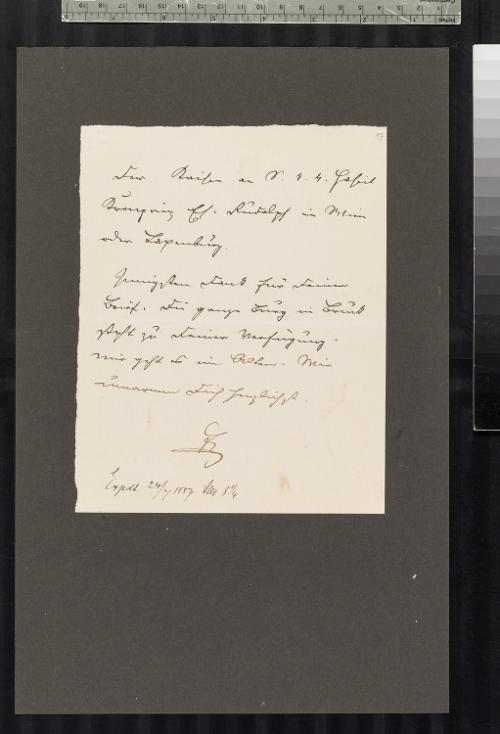 Der Kaiser an S. k. k. Hoheit
Kronprinz Eh. Rudolph in Wien
oder Laxenburg.
Innigsten Dank für Deinen
Brief. Die ganze Burg in Bruck
steht zu Deiner Verfügung.
Mir geht es im Alten. Wir
umarmen Dich herzlichst.
Expdt. 24/7 1887 Um 8¼